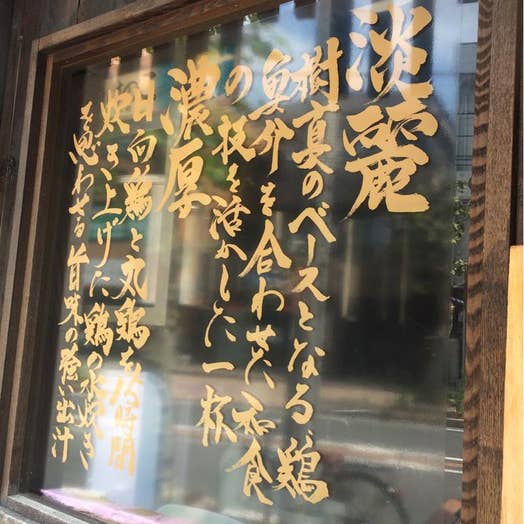 淡麗
樹真のベースとなる、鶏
魚介を合わせた和食
の技を活かした一杯
濃厚
日向鶏と丸鶏を16時間
炊き上げた鶏の水炊き
を思わせる旨味の強い出汁